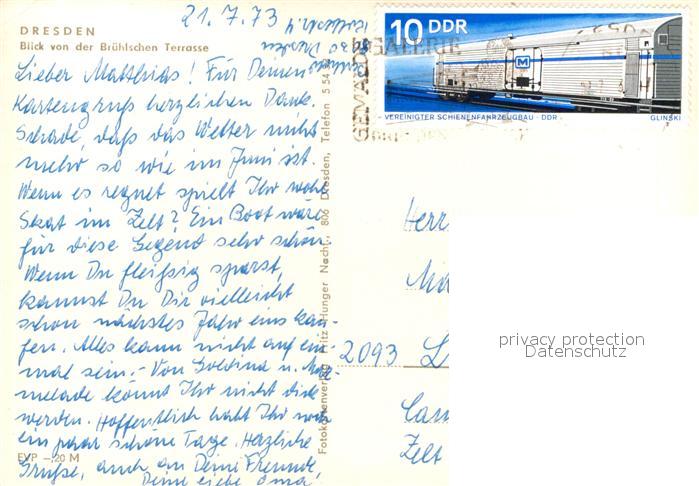 21.7.73
DRESDEN
Blick von der Brühlschen Terrasse
Lieber Matthias! Für Deinen
Kartengruß herzlichen Dank.
Schade, daß das Wetter nicht
mehr so wie im Juni ist.
Wenn es regnet spielt Ihr wohl
Skat im Zelt? Ein Boot wäre
für diese Gegend sehr schön.
Wenn Du fleißig sparst,
kannst Du Dir vielleicht
schon nächstes Jahr eins kau-
fen. Alles kann nicht auf ein-
mal sein.- Von Goldina u. Mar-
melade könnt Ihr nicht dick
werden. Hoffentlich habt Ihr noch
ein paar schöne Tage. Herzliche
Grüße, auch an Deine Freunde,
Deine liebe Oma!
EVP -,20 M
Fotokartenverlag Fritz Hunger Nachf., 806 Dresden, Telefon 5 54
10 DDR
M
VEREINIGTER SCHIENENFAHRZEUGBAU · DDR
GLINSKI
GALERIE
GEMÄL
Herr
Ma
2093 L
Cam
Zelt
privacy protection
Datenschutz